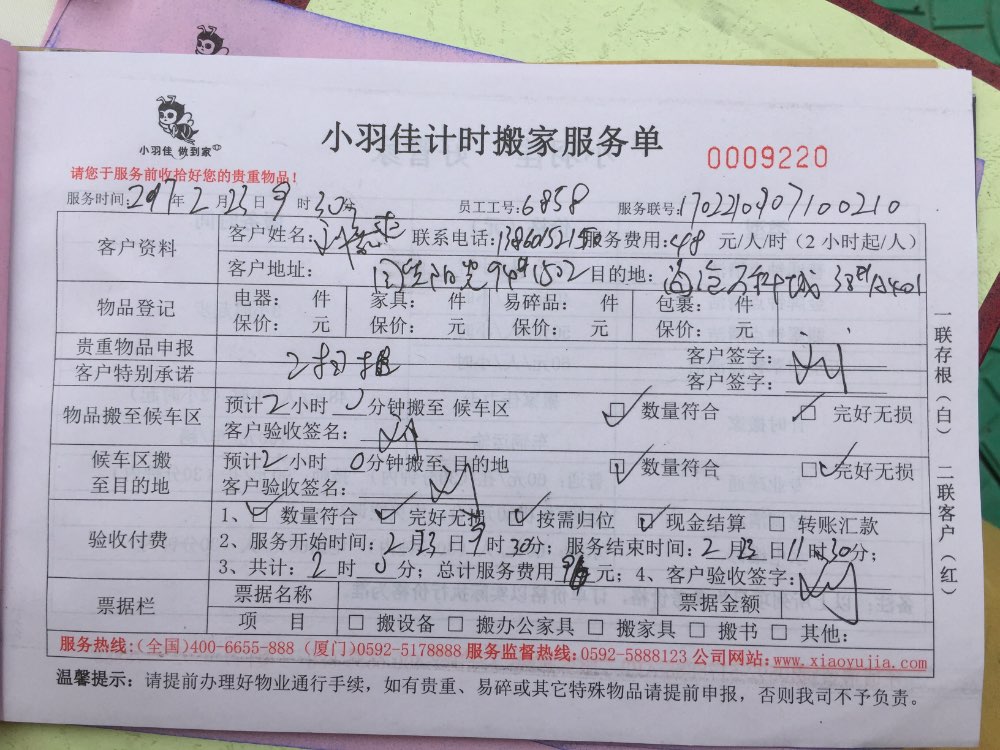 小羽佳 做到家
小羽佳计时搬家服务单
0009220
请您于服务前收拾好您的贵重物品！
服务时间：2017年2月23日9时30分 员工工号：6858 服务联号：1702210907100210
客户资料 客户姓名： 联系电话： 服务费用：48元/人/时（2小时起/人）
客户地址： 阳光94#1502 目的地： 万科城 38#A401
物品登记 电器： 件 家具： 件 易碎品： 件 包裹： 件
保价： 元 保价： 元 保价： 元 保价： 元
贵重物品申报 客户签字：
客户特别承诺 客户签字：
物品搬至候车区 预计2小时0分钟搬至 候车区 □数量符合 □完好无损
客户验收签名：
候车区搬至目的地 预计2小时0分钟搬至 目的地 □数量符合 □完好无损
客户验收签名：
验收付费 1、□数量符合 □完好无损 □按需归位 □现金结算 □转账汇款
2、服务开始时间：2月23日9时30分；服务结束时间：2月23日11时30分；
3、共计：2时0分；总计服务费用 元；4、客户验收签字：
票据栏 票据名称 票据金额
项 目 □搬设备 □搬办公家具 □搬家具 □搬书 □其他：
服务热线：（全国）400-6655-888（厦门）0592-5178888 服务监督热线：0592-5888123 公司网站：www.xiaoyujia.com
温馨提示：请提前办理好物业通行手续，如有贵重、易碎或其它特殊物品请提前申报，否则我司不予负责。
一联存根（白） 二联客户（红）